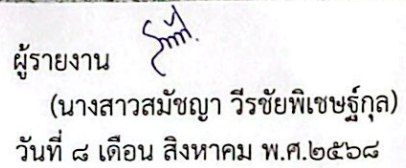 ผู้รายงาน
(นางสาวสมัชญา วีรชัยพิเชษฐ์กุล)
วันที่ ๘ เดือน สิงหาคม พ.ศ.๒๕๖๘